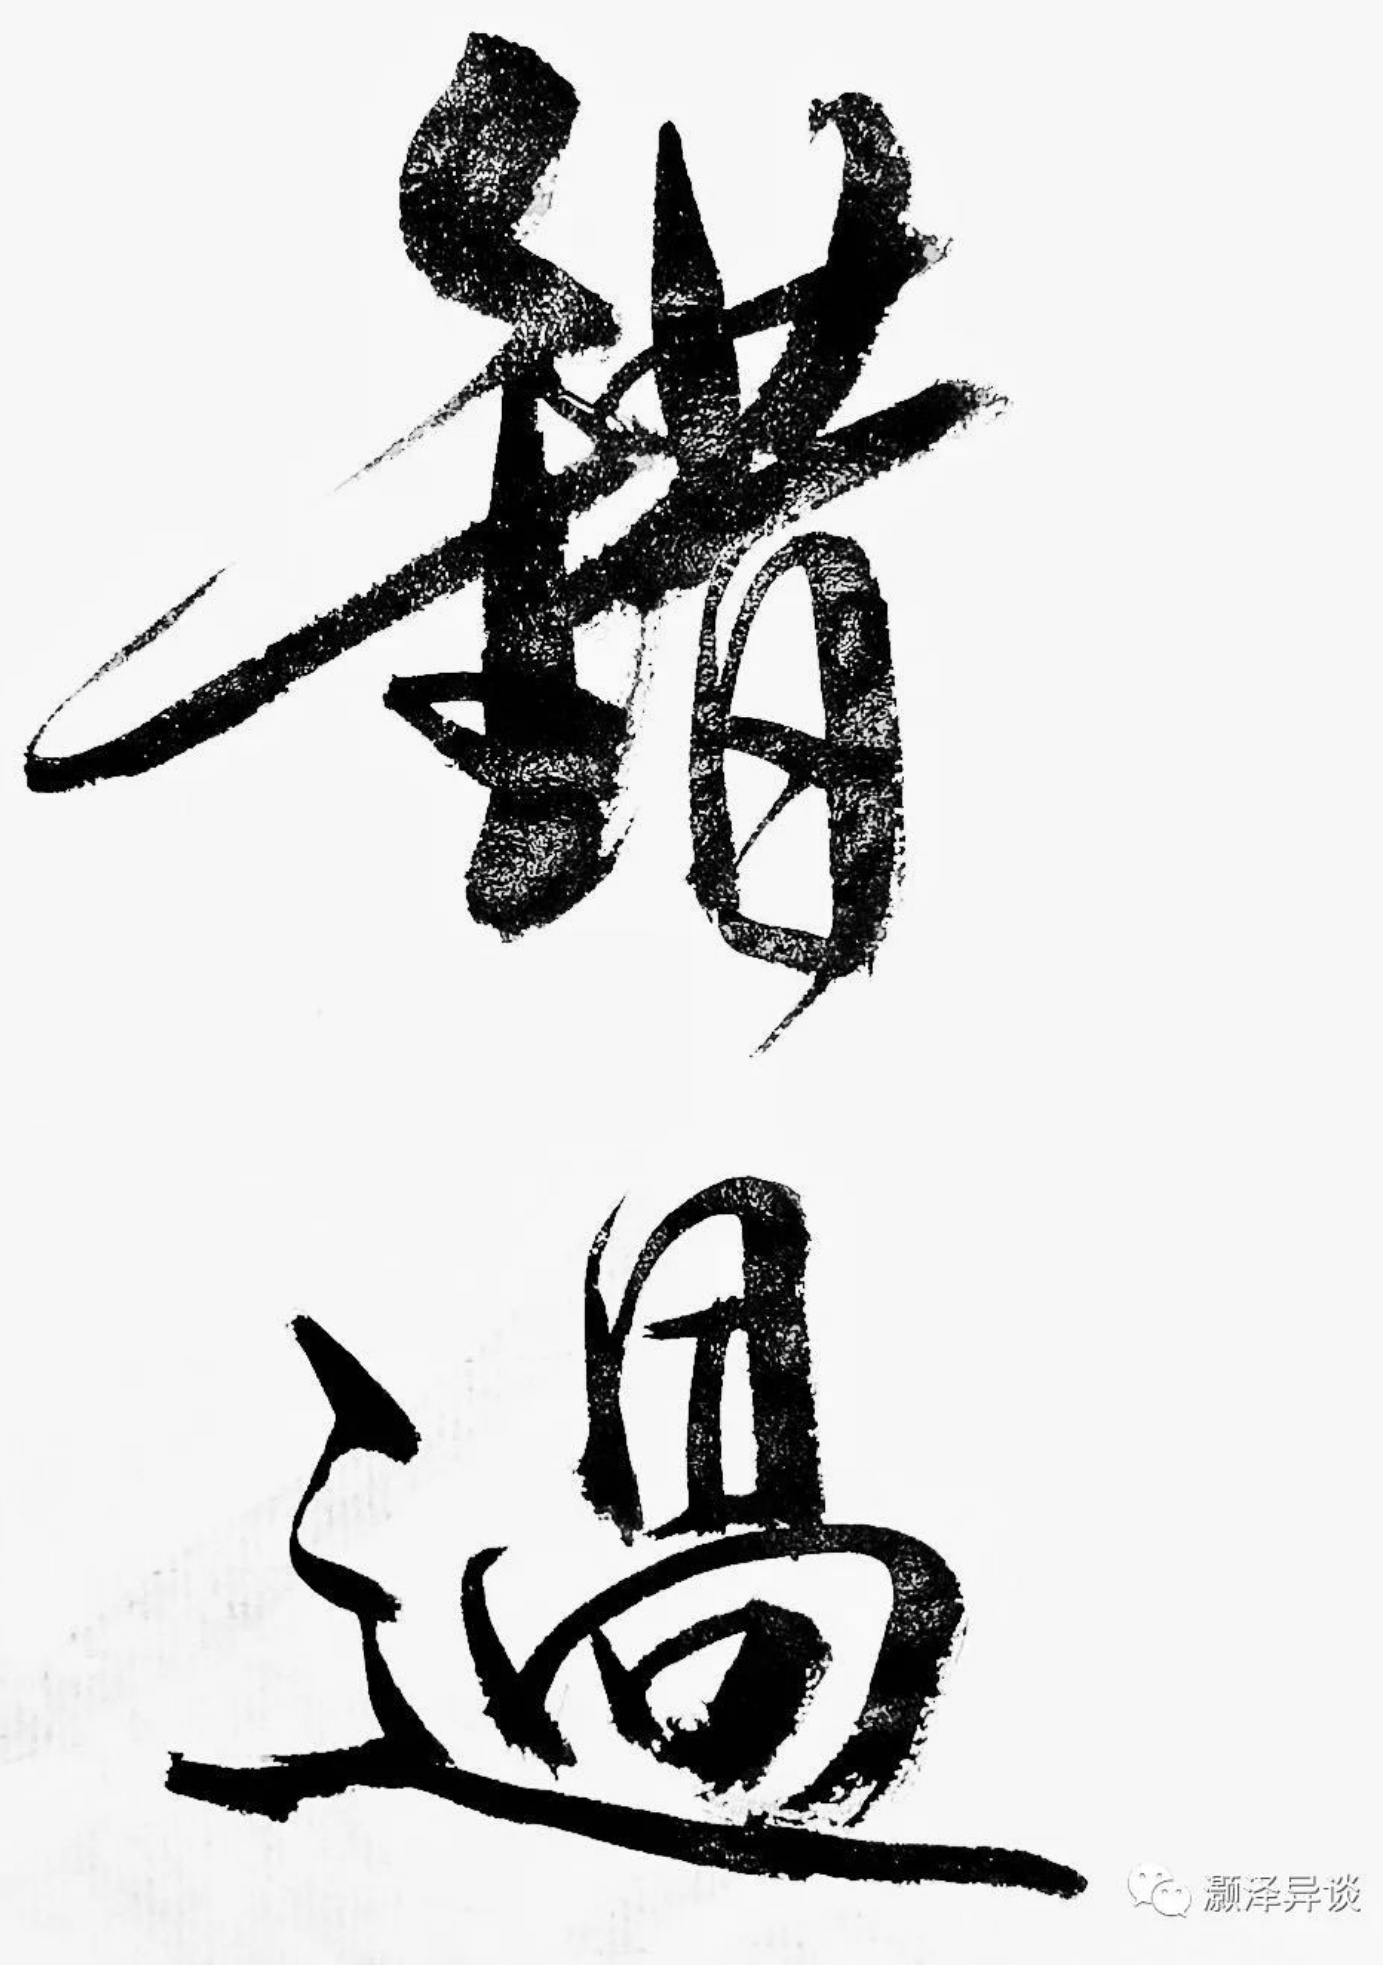 錯
過
灏泽异谈